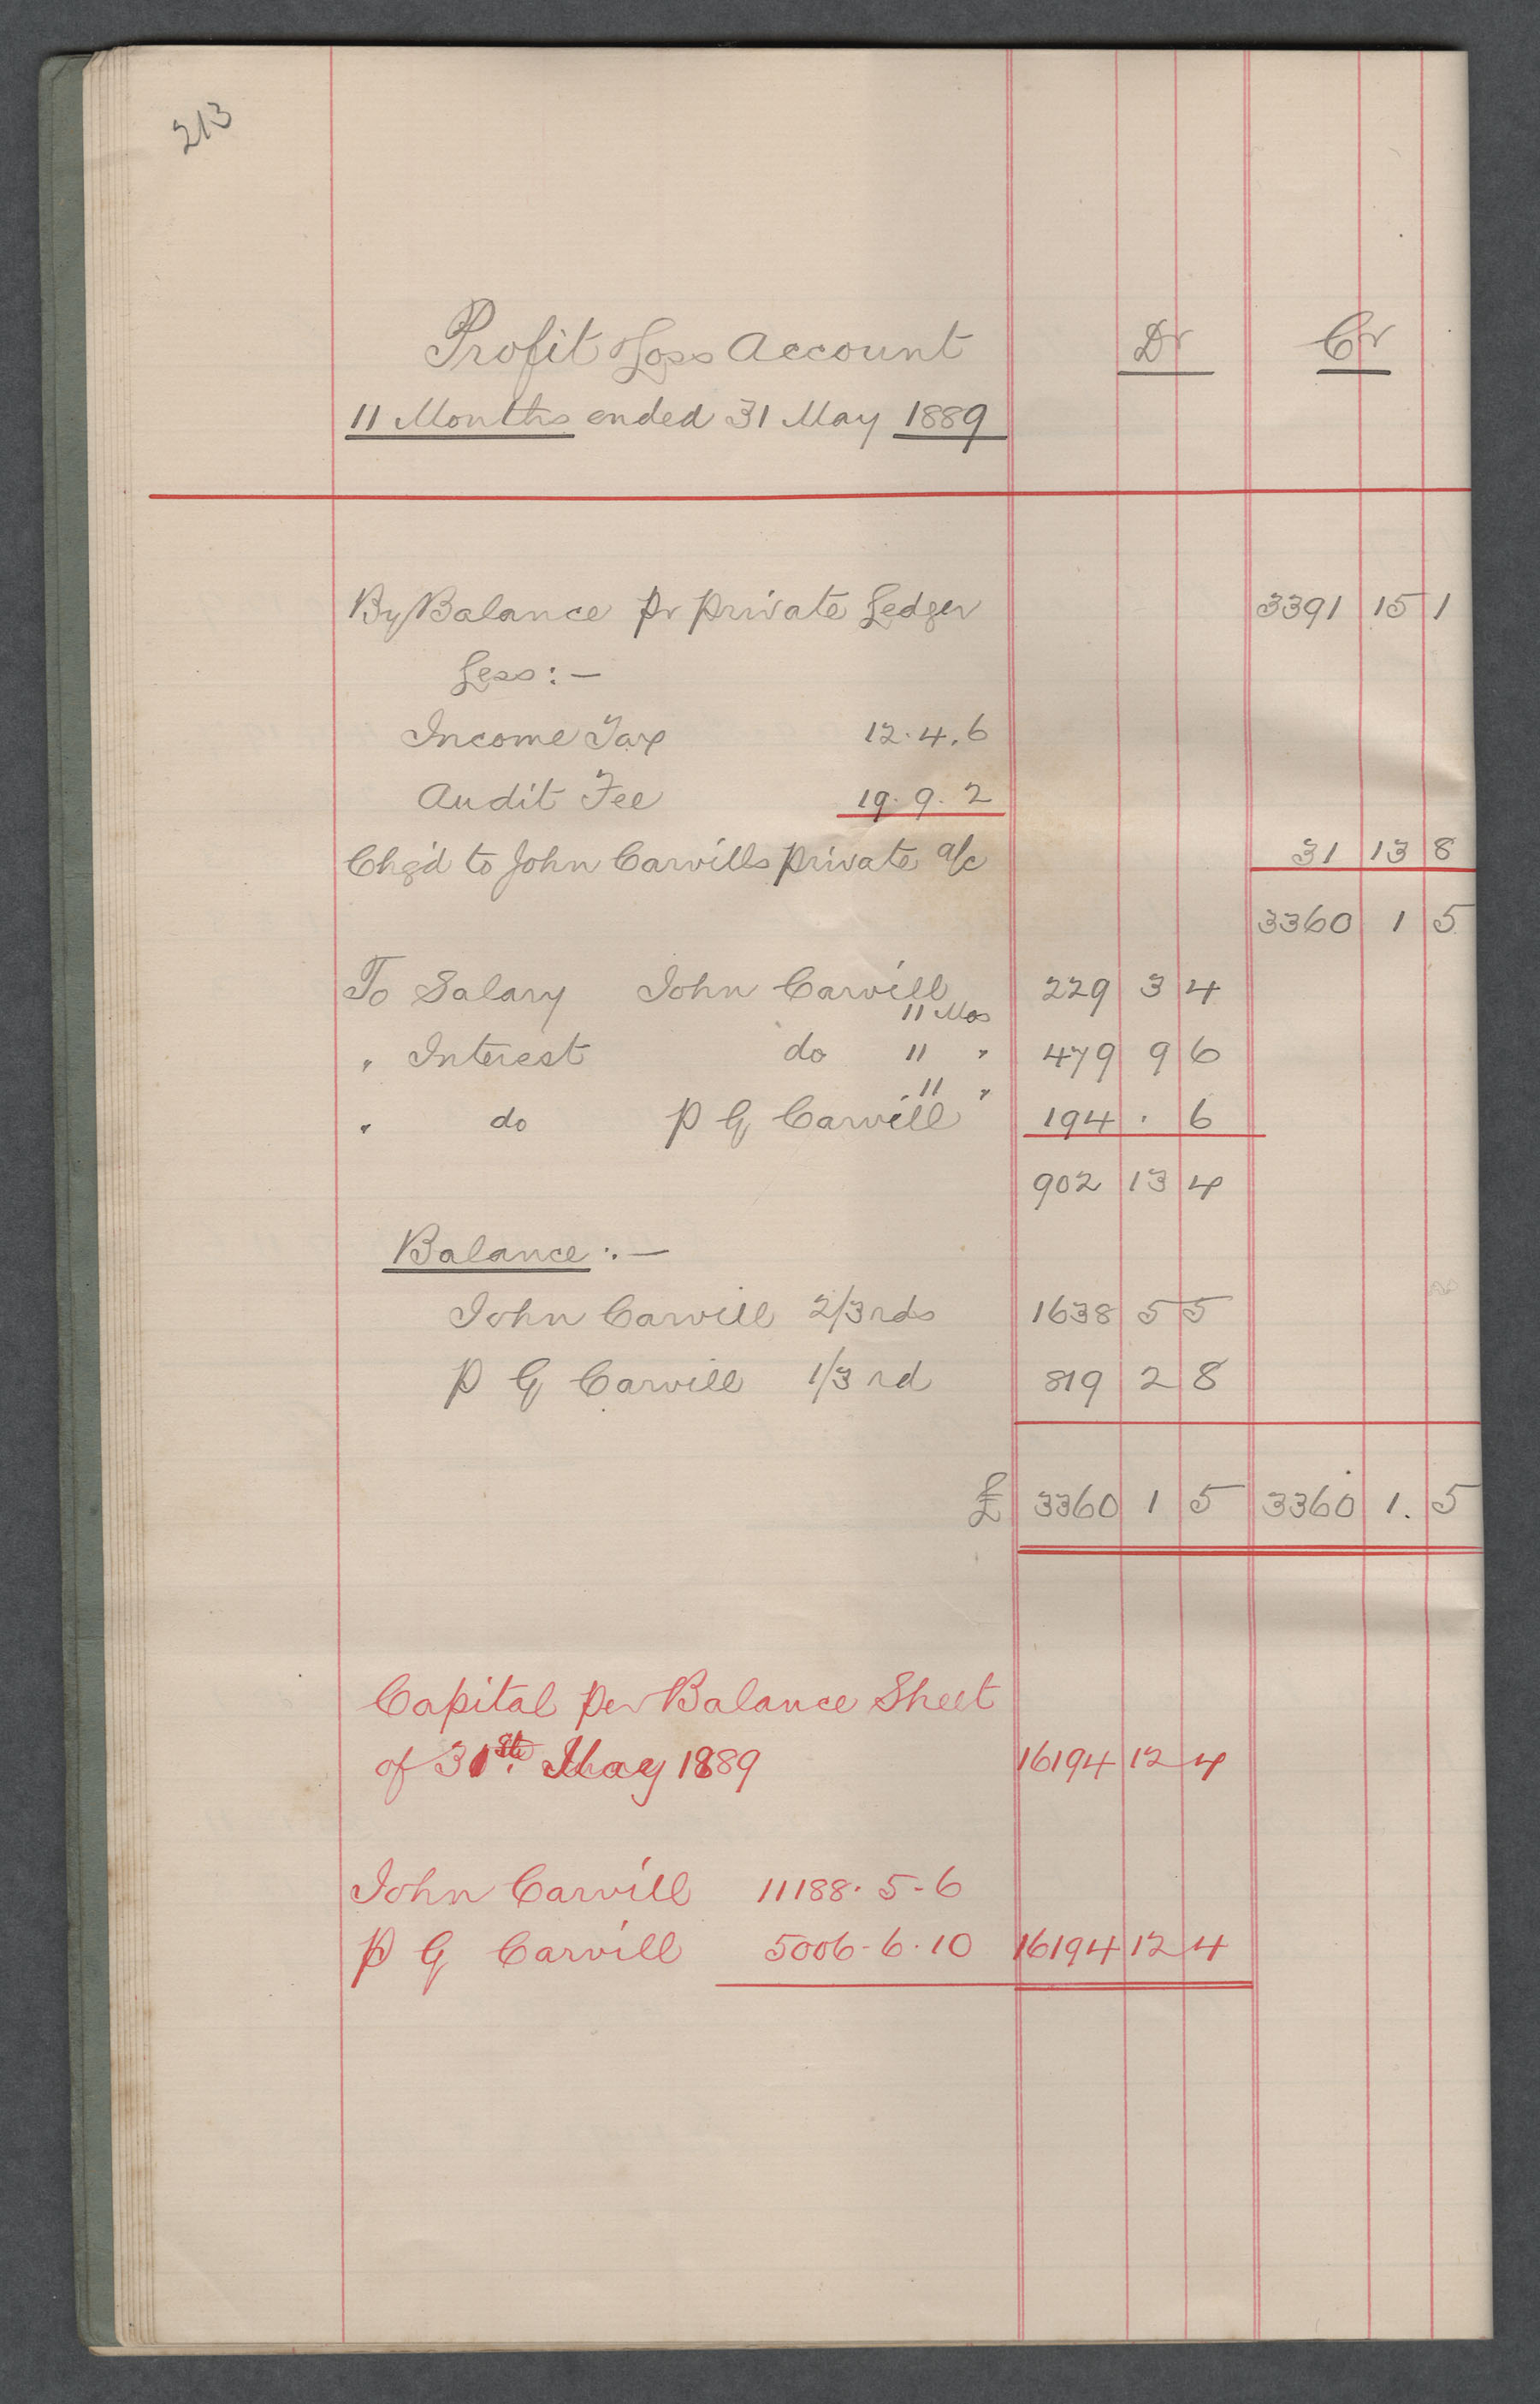 213
Profit & Loss Account Dr Cr
11 Months ended 31 May 1889
By Balance pr private Ledger 3391 15 1
Less:—
Income Tax 12.4.6
Audit Fee 19.9.2
Chg'd to John Carvills private a/c 31 13 8
3360 1 5
To Salary John Carvill 229 3 4
11 Mos
" Interest do 11 " 479 9 6
11 "
" do P G Carvill 194 . 6
902 13 4
Balance:—
John Carvill 2/3rds 1638 5 5
P G Carvill 1/3rd 819 2 8
£ 3360 1 5 3360 1. 5
Capital per Balance Sheet
of 31st. May 1889 16194 12 4
John Carvill 11188.5-6
P G Carvill 5006-6.10 16194 12 4